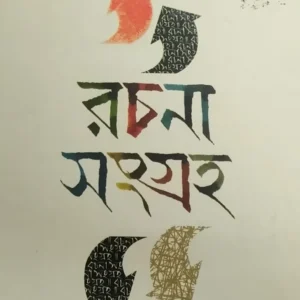 রচনা
সংগ্রহ